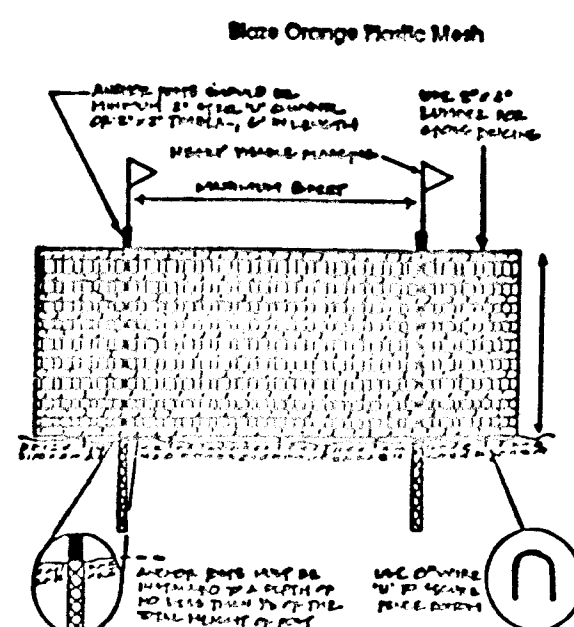 Blaze Orange Plastic Mesh
ANCHOR POSTS SHOULD BE
MINIMUM 2" STEEL "U" CHANNEL
OR 2" x 2" TIMBER, 6' IN LENGTH
USE 2" x 4"
LUMBER FOR
CROSS BRACING
HIGHLY VISIBLE FLAGGING
MAXIMUM 8 FEET
ANCHOR POSTS MUST BE
INSTALLED TO A DEPTH OF
NO LESS THAN 1/3 OF THE
TOTAL HEIGHT OF POST
USE 8" WIRE
"U" TO SECURE
FENCE BOTTOM